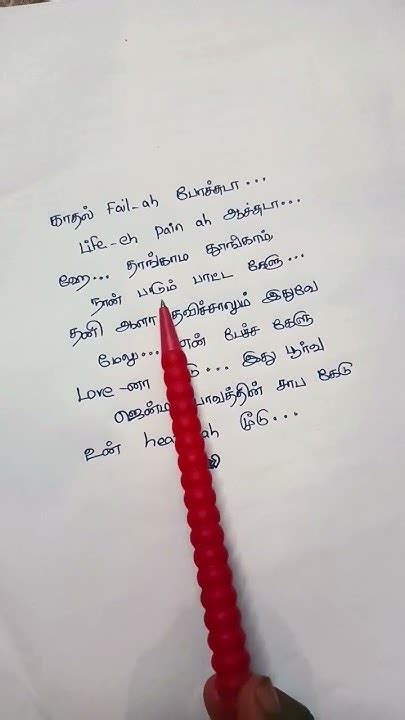 காதல் Fail-ah போச்சுடா...
Life-eh pain ah ஆச்சுடா...
ஹே... தாங்காம தூங்காம,
நான் படும் பாட்ட கேளு...
தனி ஆளா தவிச்சாலும் இதுவே
மேலு... என் பேச்ச கேளு
Love-னா இது பூர்வ
ஜென்ம பாவத்தின் சாப கேடு
உன் மூடு...